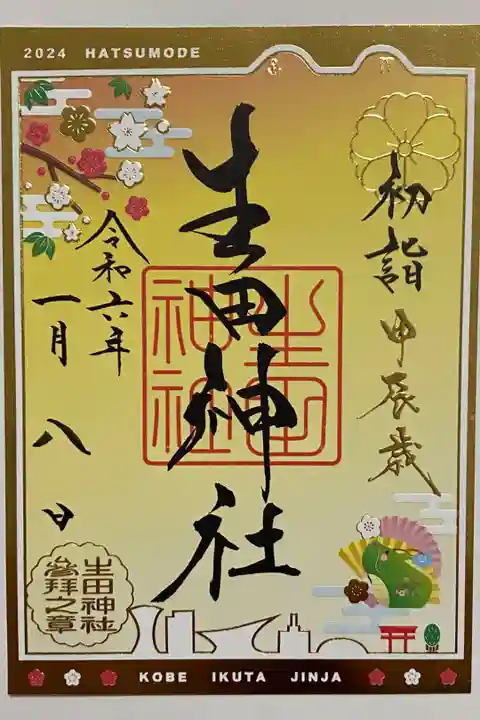 2024 HATSUMODE
初詣 甲辰歳
生田神社
生田神社
令和六年
一月八日
生田神社
参拝之章
KOBE IKUTA JINJA